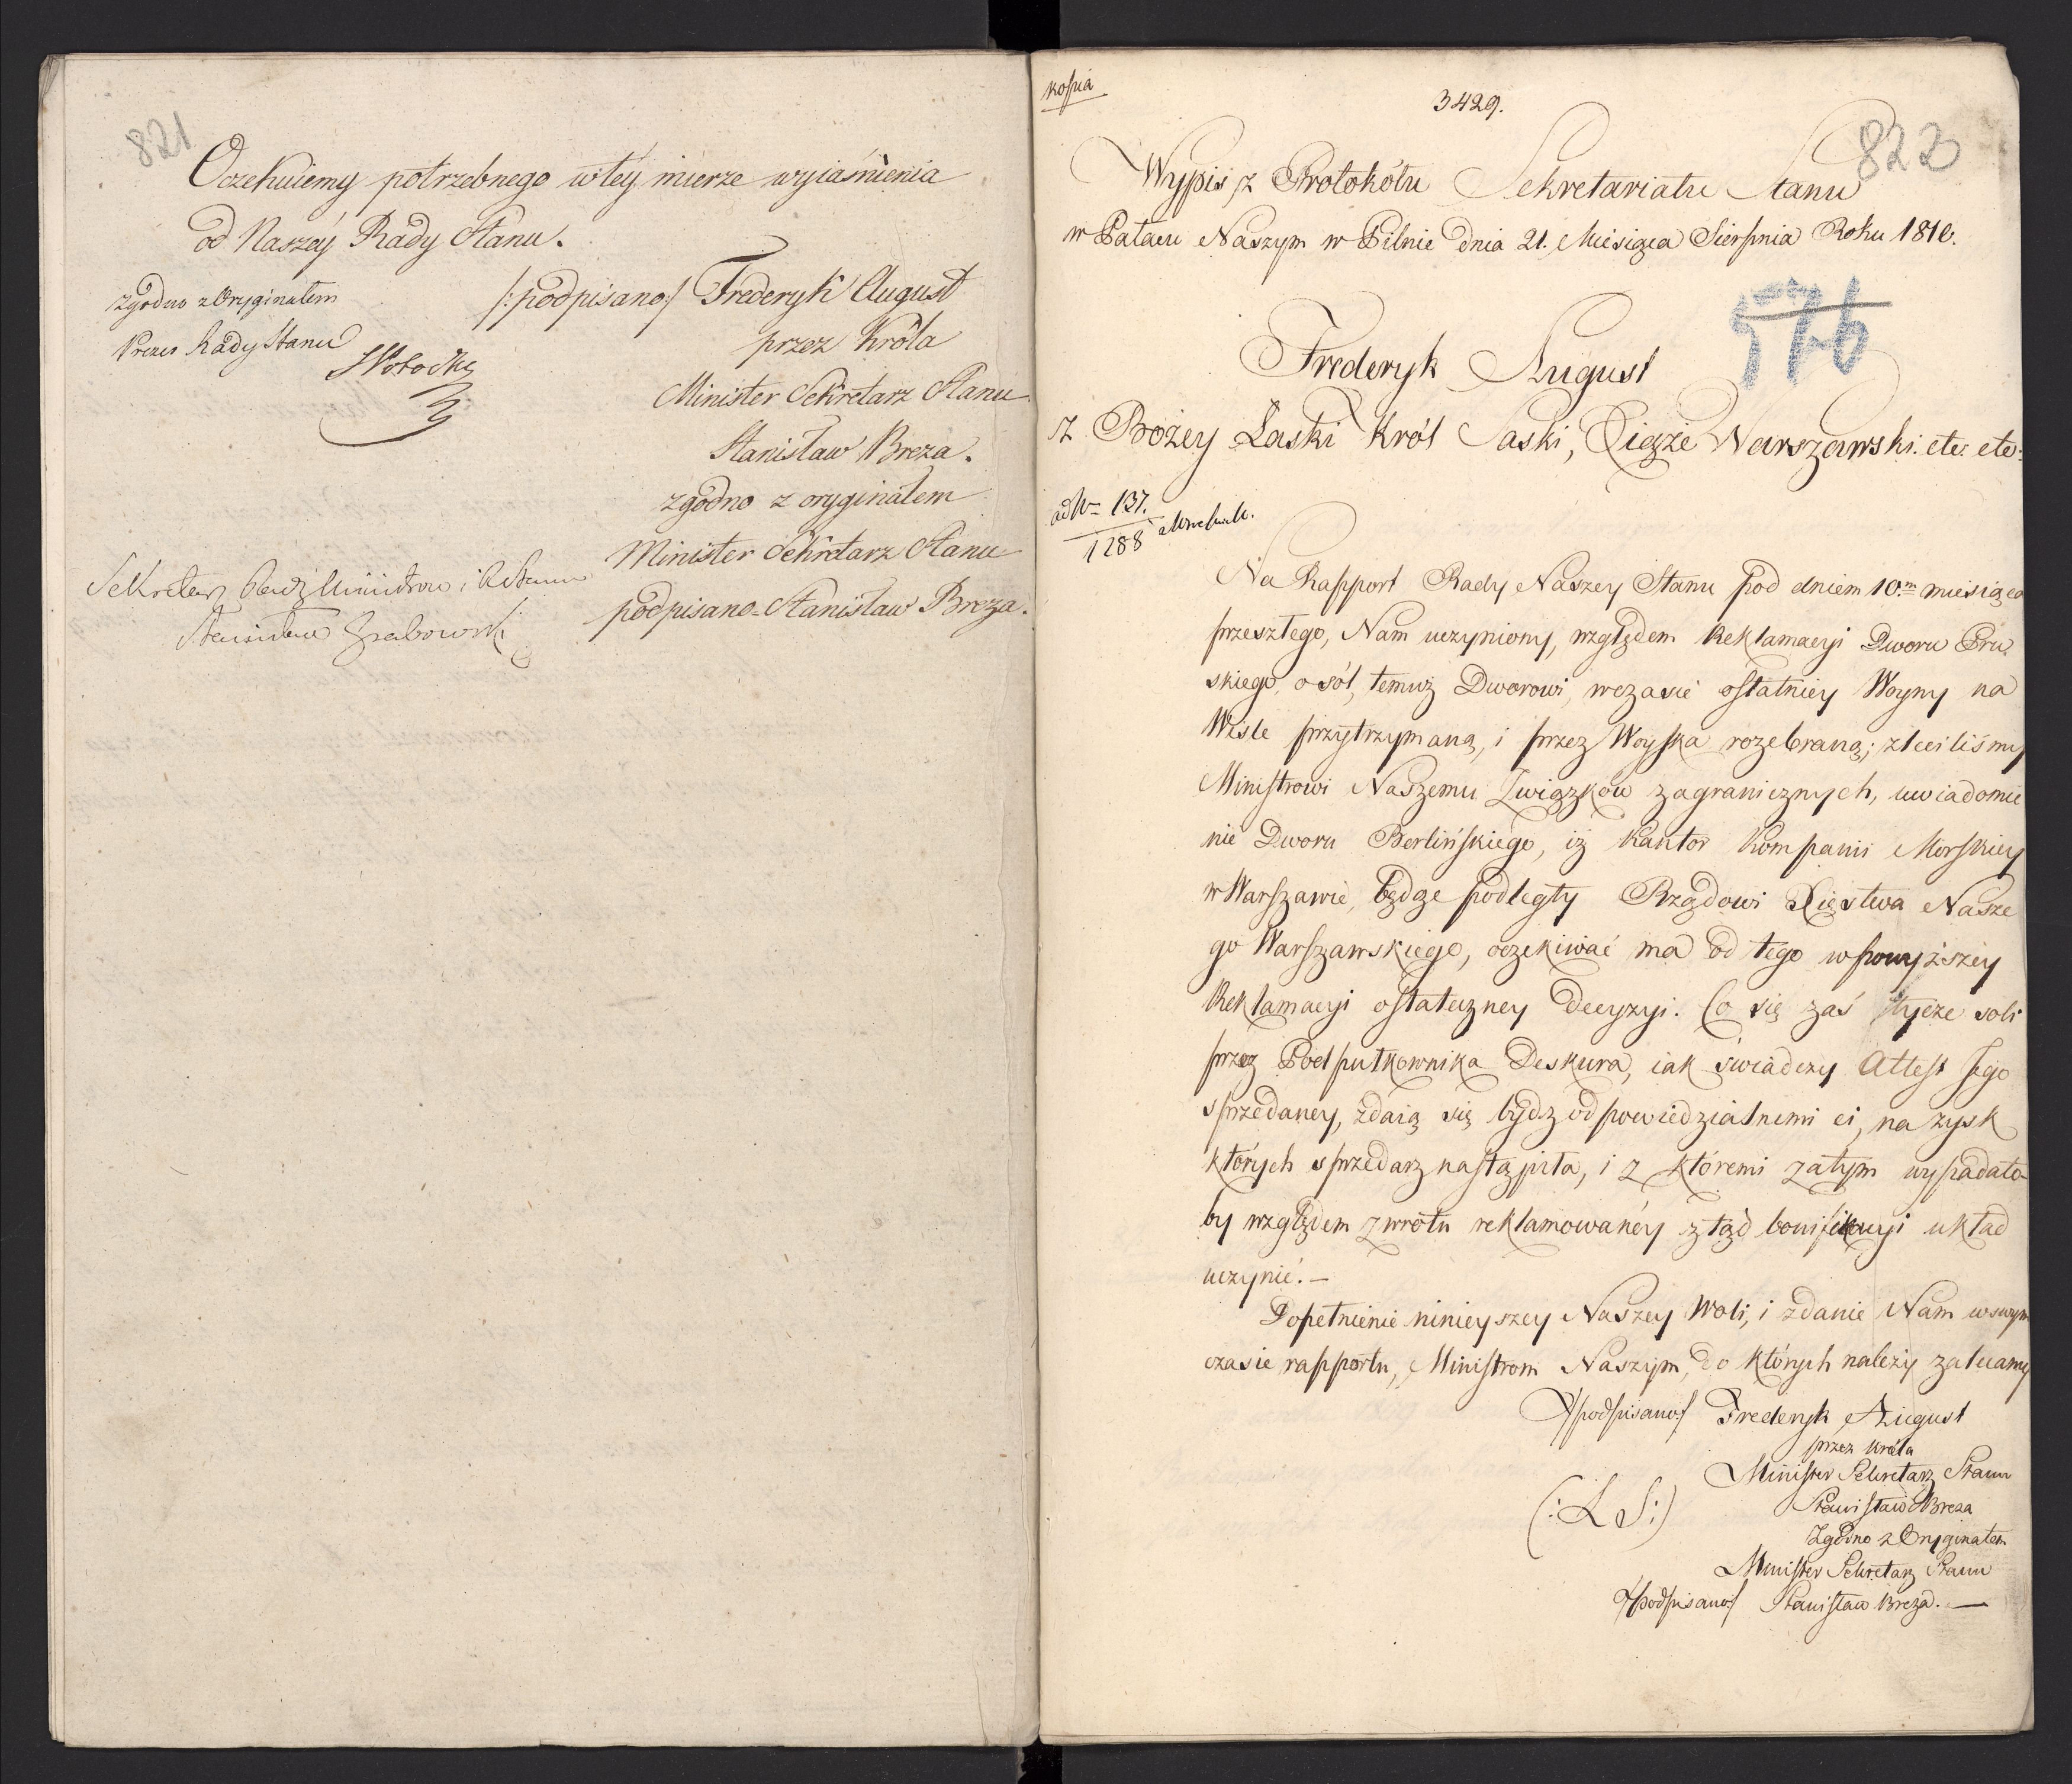 821
Oczekuiemy potrzebnego w tey mierze wyiaśnienia
od Naszéy Rady Stanu.
/:podpisano:/ Frederyk August
przez Króla
Minister Sekretarz Stanu
Stanisław Breza.
zgodno z oryginałem
Minister Sekretarz Stanu
podpisano - Stanisław Breza.
zgodno z Oryginałem
Prezes Rady Stanu
Sekretarz Rady Ministrow i R Stanu
Stanisław Grabowski
kopia
3429.
822
Wypis z Protokółu Sekretariatu Stanu
w Pałacu Naszym w Pilnie dnia 21. Miesiąca Sierpnia Roku 1810.
576
Frederyk August
z Bożey Łaski Król Saski, Xiąże Warszawski. etc: etc:
ad Nr 137.
1288
Na Rapport Rady Naszey Stanu pod dniem 10.m miesiąca
przeszłego, Nam uczyniony, względem Reklamacyi Dworu Pru
skiego, o sól, temuż Dworowi, w czasie ostatniey Woyny na
Wiśle przytrzymaną, i przez Woyska rozebraną; zleciliśmy
Ministrowi Naszemu Związków zagranicznych, uwiadomie
nie Dworu Berlińskiego, iż Kantor Kompanii Morskiey
w Warszawie, będąc podległy Rządowi Xięstwa Nasze
go Warszawskiego, oczekiwać ma od tego w powyższey
Reklamacyi ostateczney Decyzyi. Co się zaś tycze soli
przez Podpułkownika Deskura, iak świadczy Attest Jego
sprzedaney, zdaią się bydź odpowiedzialnemi ci, na zysk
których sprzedarz nastąpiła, i z któremi zatym wypadało
by względem zwrotu reklamowanéy ztąd bonifikacyi układ
uczynić. –
Dopełnienie ninieyszey Naszey Woli, i zdanie Nam w swym
czasie rapportu, Ministrom Naszym, do których należy zalecamy
/:podpisano:/ Frederyk August
przez Króla
Minister Sekretarz Stanu
(: L S :)
Stanisław Breza
Zgodno z Oryginałem
Minister Sekretarz Stanu
/:podpisano:/ Stanisław Breza. —